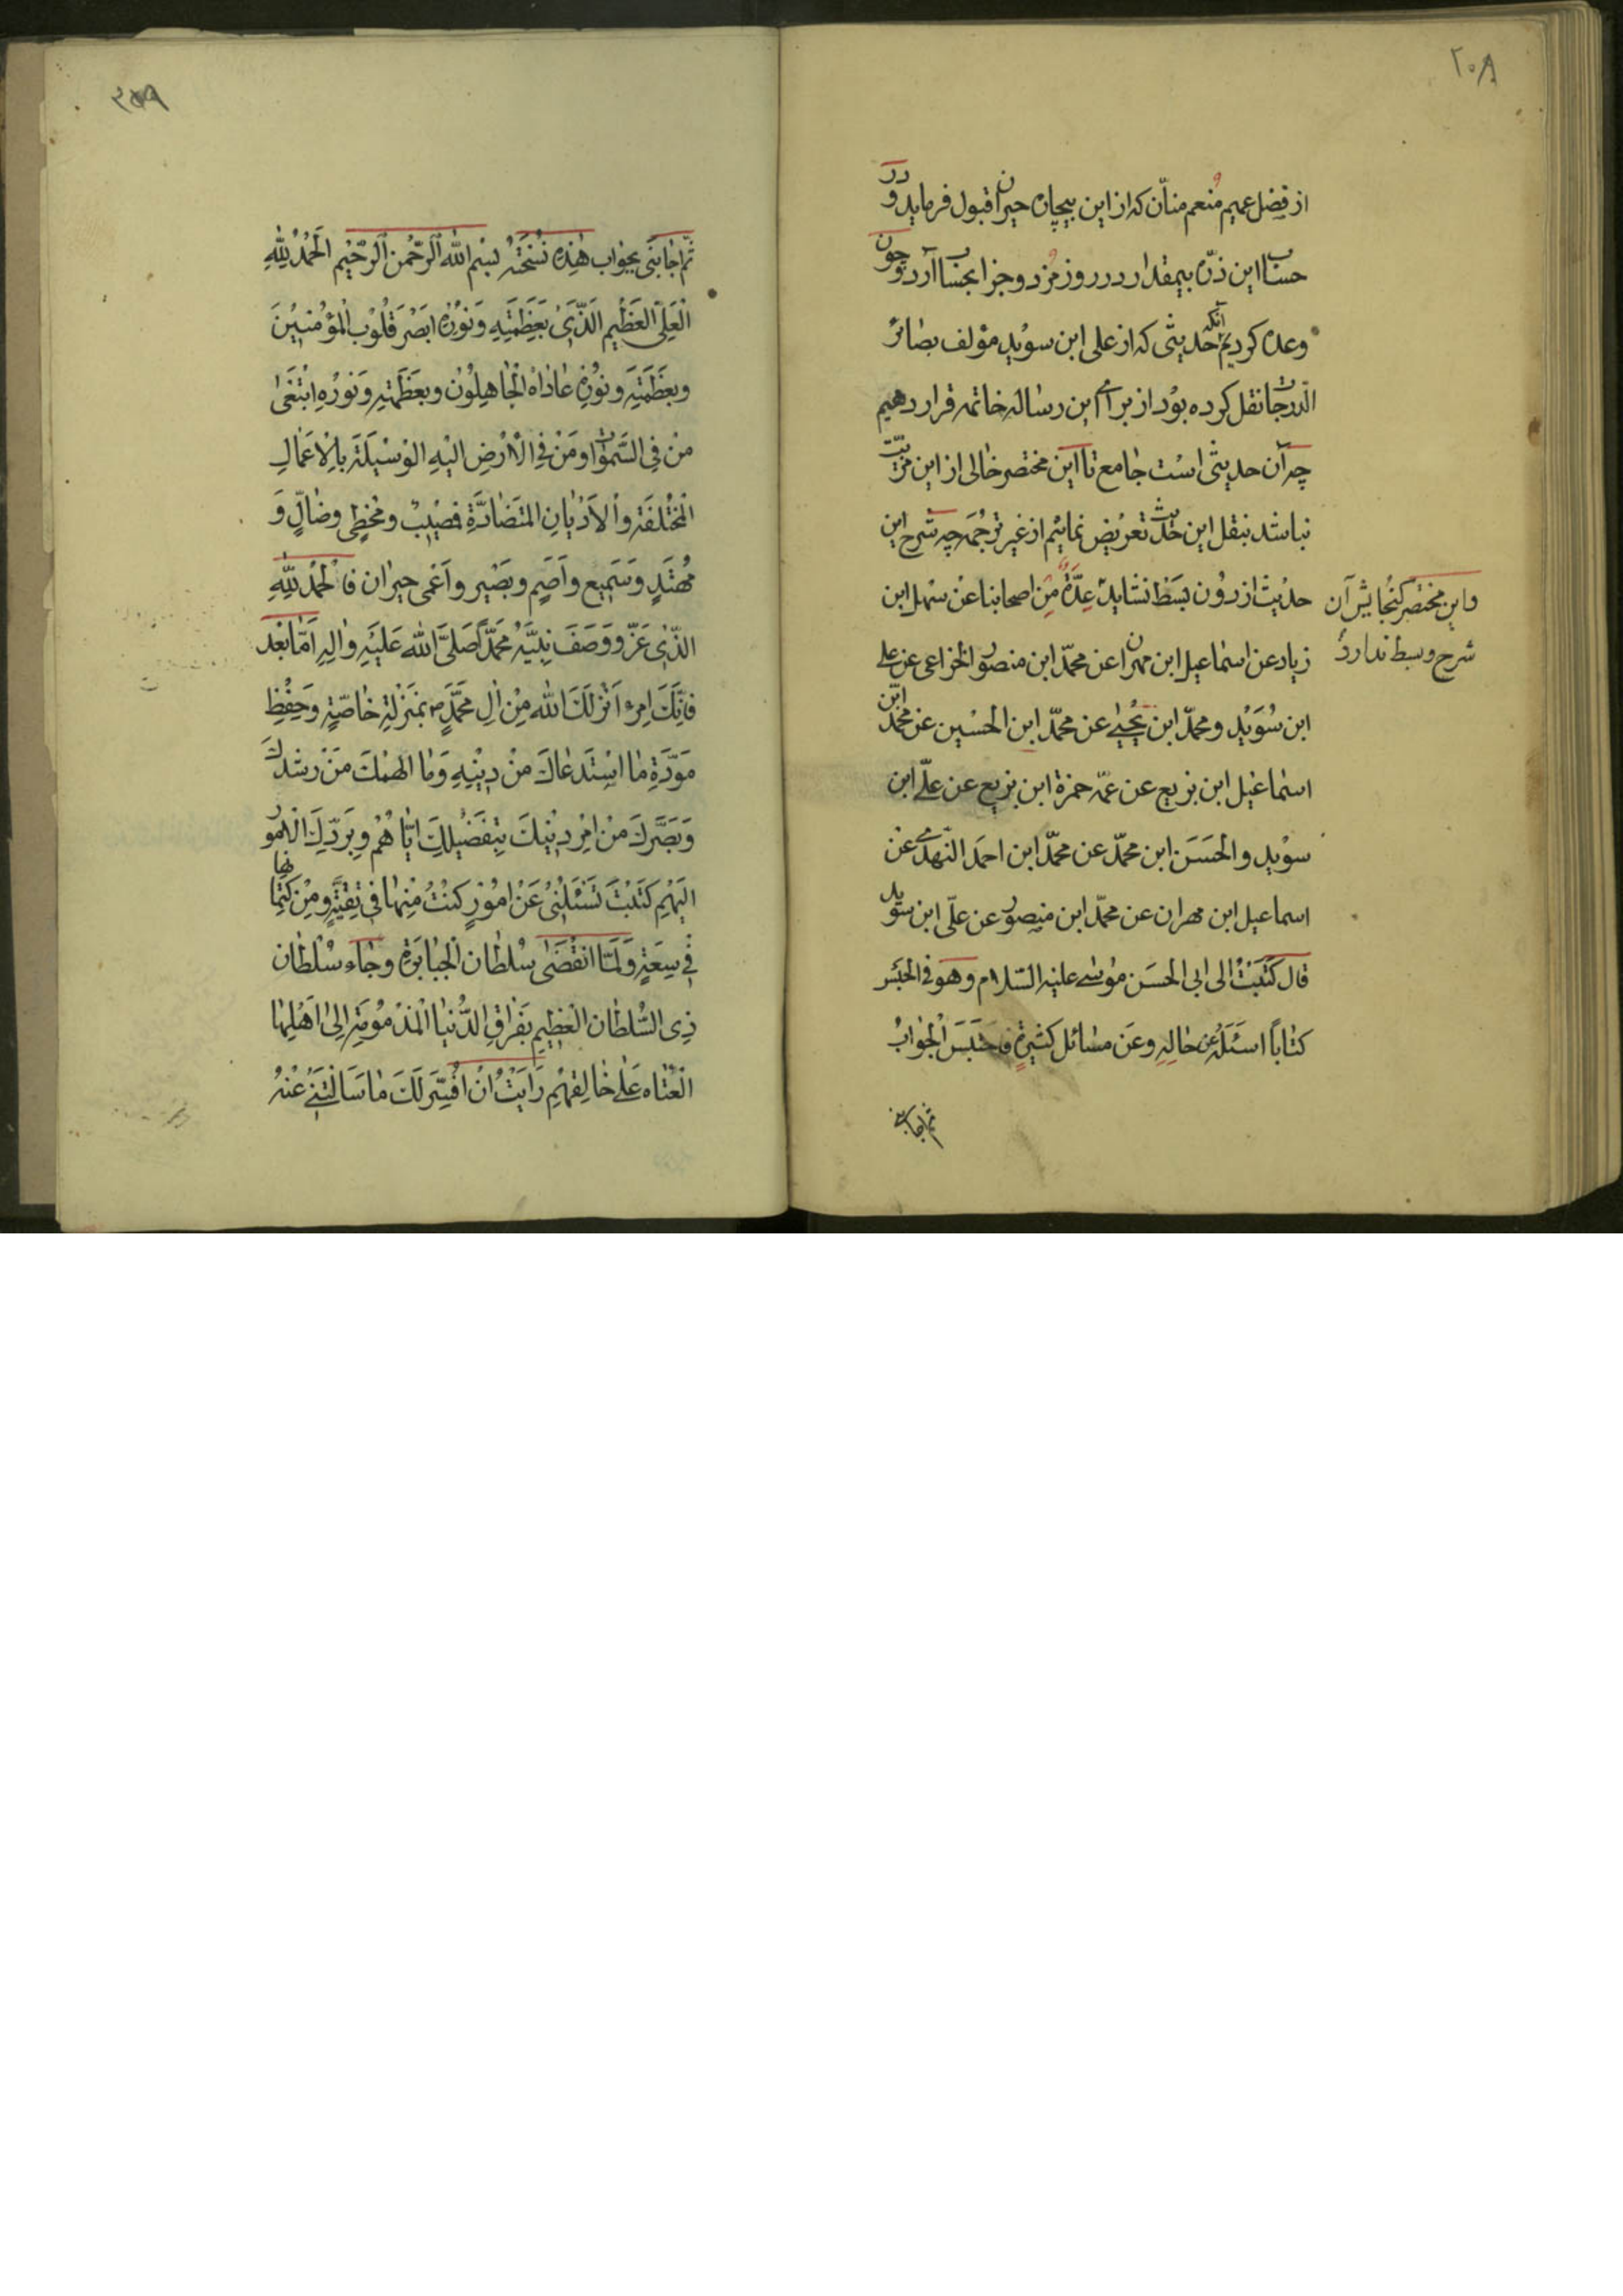 ۲۰۸
از فضل عمیم و منعم منّان که از این بیچاره حیران قبول فرماید و در
حساب این ذرّه بیمقدار در روز مزد و جزا بحساب آرد و چون
وعده کردیم آنکه حدیثی که از علی ابن سوید مؤلف بصائر
الدرجات نقل کرده بود از برای این رساله خاتمه قرار دهیم
چه آن حدیثی است جامع تا این مختصر خالی از این مزیّت
نباشد بنقل این حدیث تعریض نمائیم از غیر ترجمه چه شرح این
حدیث از دون بسط نشاید عِدَّةٌ مِن اصحابنا عن سهل ابن
واین مختصر گنجایش آن
شرح و بسط ندارد
زیاد عن اسماعیل ابن مهران عن محمّد ابن منصور الخزاعی عن علی
ابن سُوَید و محمّد ابن یحیی عن محمّد ابن الحسین عن محمّد ابن
اسماعیل ابن بزیع عن عمّه حمزة ابن بزیع عن علّی ابن
سوید والحَسَن ابن محمّد عن محمّد ابن احمد النهدی عن
اسماعیل ابن مهران عن محمّد ابن منصور عن علّی ابن سوید
قال کَتَبْتُ الی ابی الحسَن موسی علیه السّلام و هو فی الحَبْس
کتاباً اسئَلُهُ عن حالِهِ وعَن مسائل کثیرةٍ فاحتَبَسَ الْجَوابُ
ثم اجابنی
۲۵۹
ثمّ اجابَنی بجواب هذِهِ نُسْخَتُهُ بِسْمِ اللهِ الرَّحْمنِ الرَّحیْمِ الْحَمْدُ لِلّهِ
الْعَلِیّ الْعَظیْمِ الَّذی بِعَظَمَتِهِ وَ نُوْرِهِ ابْصَرَ قُلُوْبُ الْمؤْمنیْنَ
وبِعَظَمَتِهِ و نُوْرِهِ عاداهُ الْجاهِلُونَ وبِعَظَمَتِهِ وَ نورِهِ ابْتَغی
مَنْ فِی السَّمواتِ ومَنْ فِی الْاَرْضِ الیْهِ الوَسْیلَةَ بِالْاَعْمالِ
الْمخْتَلِفَةِ والْاَدْیانِ المتَضادَّةِ فَمُصْیبٌ و مُخطِیٌ وضالٌّ وَ
مُهْتَدٍ وَسَمیعٌ واَصَمُّ وبَصْیر واَعْمی حیران فالْحَمْدُ لِلّهِ
الَّذی عَزّ و وَصَفَ دِیْنَهُ مُحَمَّدٌ صَلّی اللهُ عَلَیْهِ والِهِ اَمّا بَعْد
فَاِنَّکَ امْرءٌ اَنْزَلَکَ اللهُ مِنْ الِ مُحَمَّدٍ بِمَنْزِلَةٍ خاصّةٍ وَحَفْظِ
مَوَدَّةِ مَا اسْتَدعاکَ مِنْ دِیْنِهِ وَما الهمَکَ مِنْ رشدکَ
وَبَصَّرَکَ مِنْ اَمْرِ دِیْنِکَ بِتَفْضیْلِکَ ایّاهُمْ وبِرَدِّکَ الْاُمورَ
الَیْهِمْ کَتَبْتَ تَسْئَلُنی عَنْ اُمُوْرٍ کُنْتُ مِنْها فی تقیَّةٍ و مِنْ کِتْمانِها
فی سَعَةٍ وَ لَمّا انْقَضی سُلْطان الْجَبابَرَةِ و جاءَ سُلْطان
ذِی السُّلطان الْعَظیمِ بِفِراقِ الدُّنیا الْمَذْمُومَةِ اِلی اَهْلِها
الْعُتاةِ عَلی خالِقهِمْ رَأیْتُ اَنْ اُفَسِّرَ لَکَ ما سَألْتَنی عَنْهُ